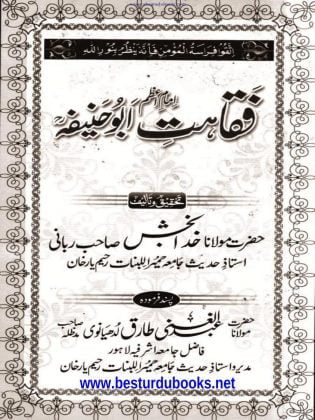 اتقوا فراسة المؤمن فانه ينظر بنور الله
امام اعظم
فقاہتِ ابوحنیفہؒ
تحقیق و تالیف
حضرت مولانا خدا بخش صاحب ربانی
استاذِ حدیث جامعہ للبنات رحیم یار خان
پسند فرمودہ
حضرت مولانا عبدالغنی طارق لدھیانوی صاحب مدظلہ
فاضل جامعہ اشرفیہ لاہور
مدیر و استاذ حدیث جامعہ للبنات رحیم یار خان
www.besturdubooks.net